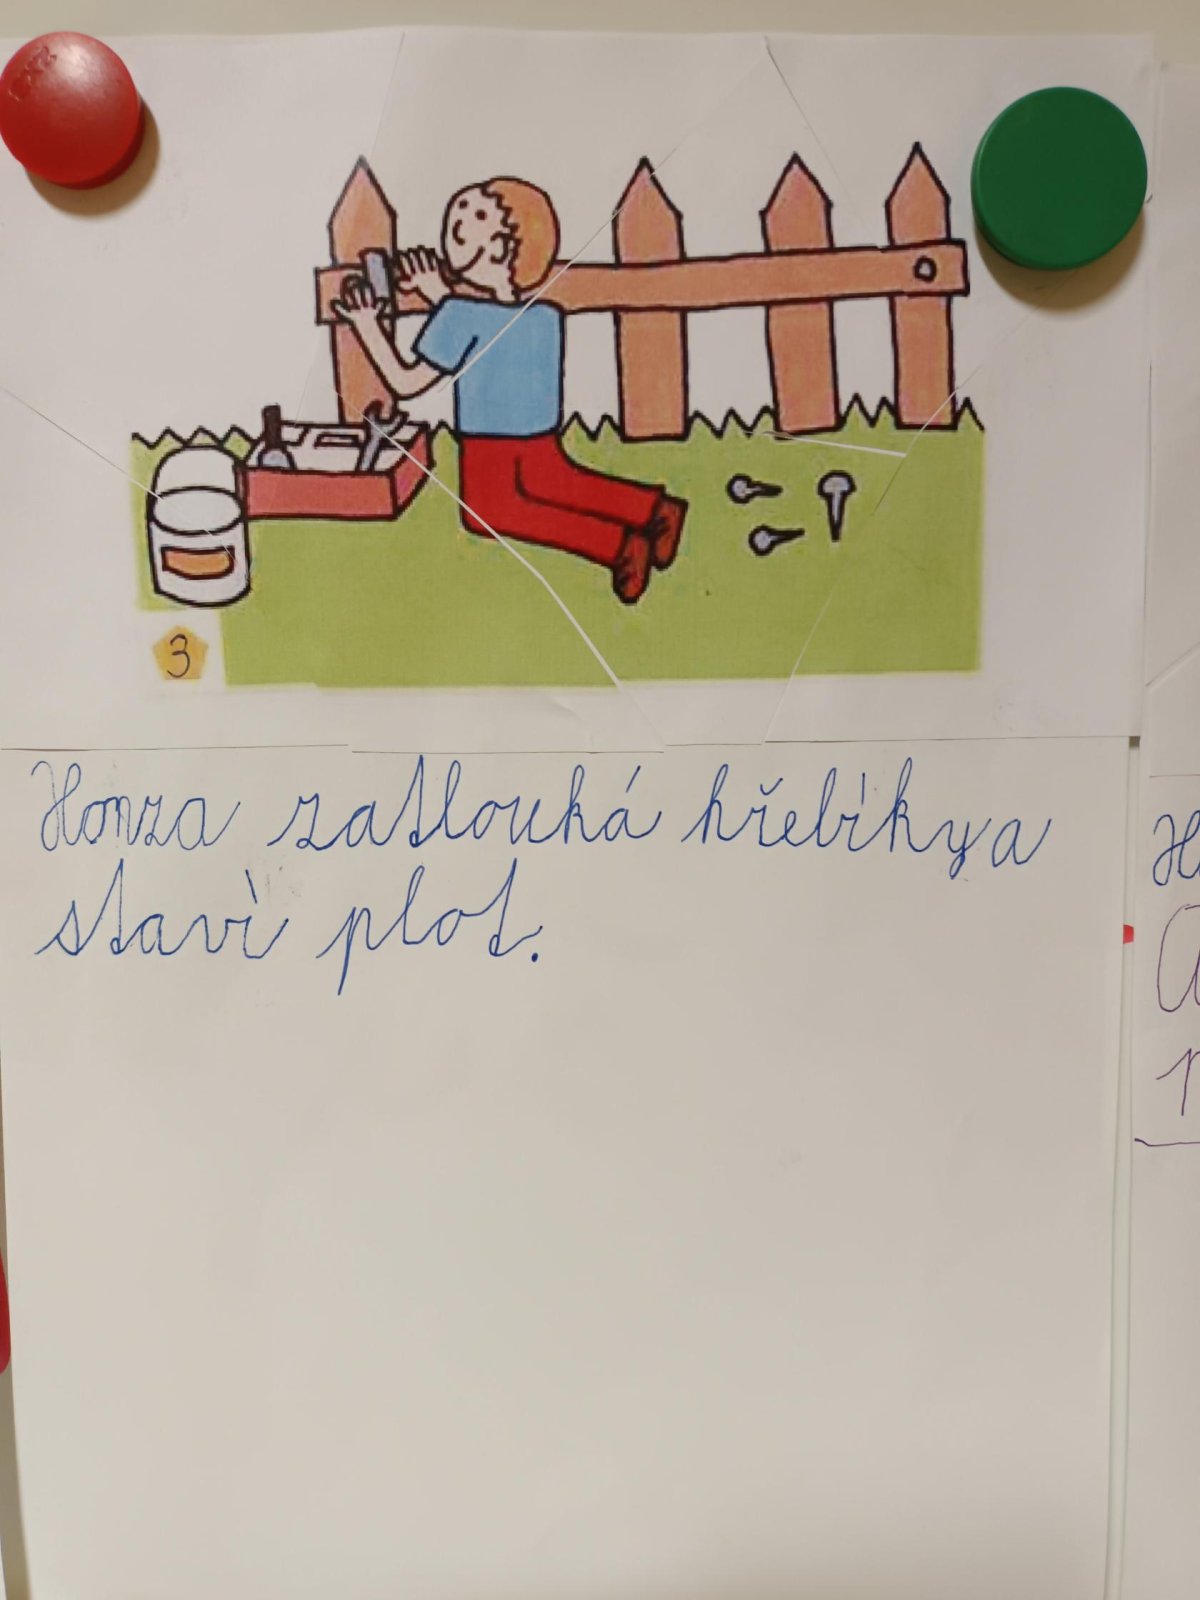 3
Honza zatlouká hřebíky a
staví plot.